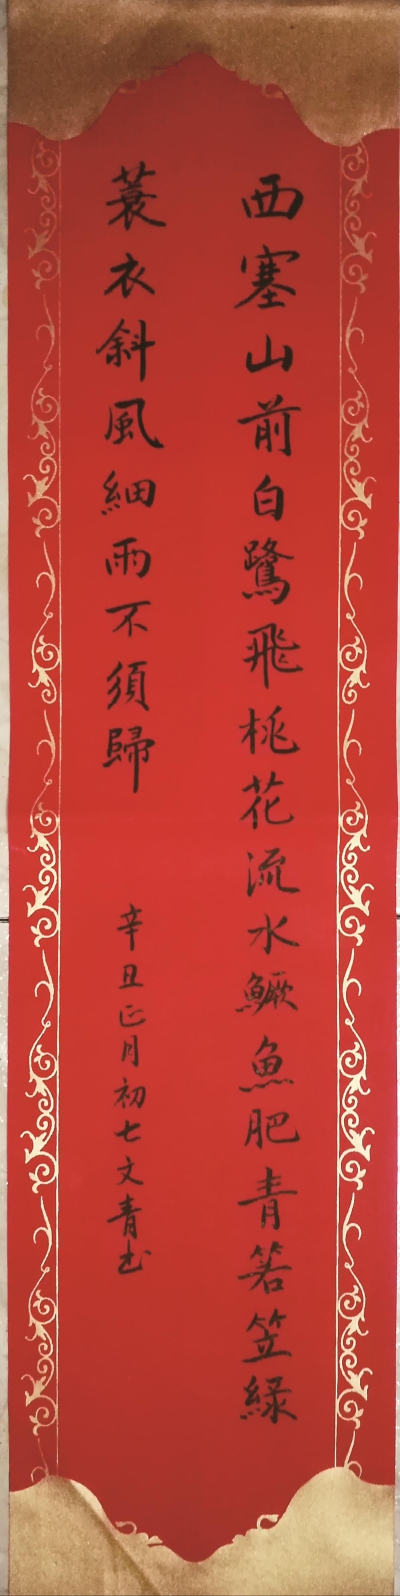 西塞山前白鷺飛桃花流水鱖魚肥青箬笠緑
蓑衣斜風細雨不須歸
辛丑正月初七文青书